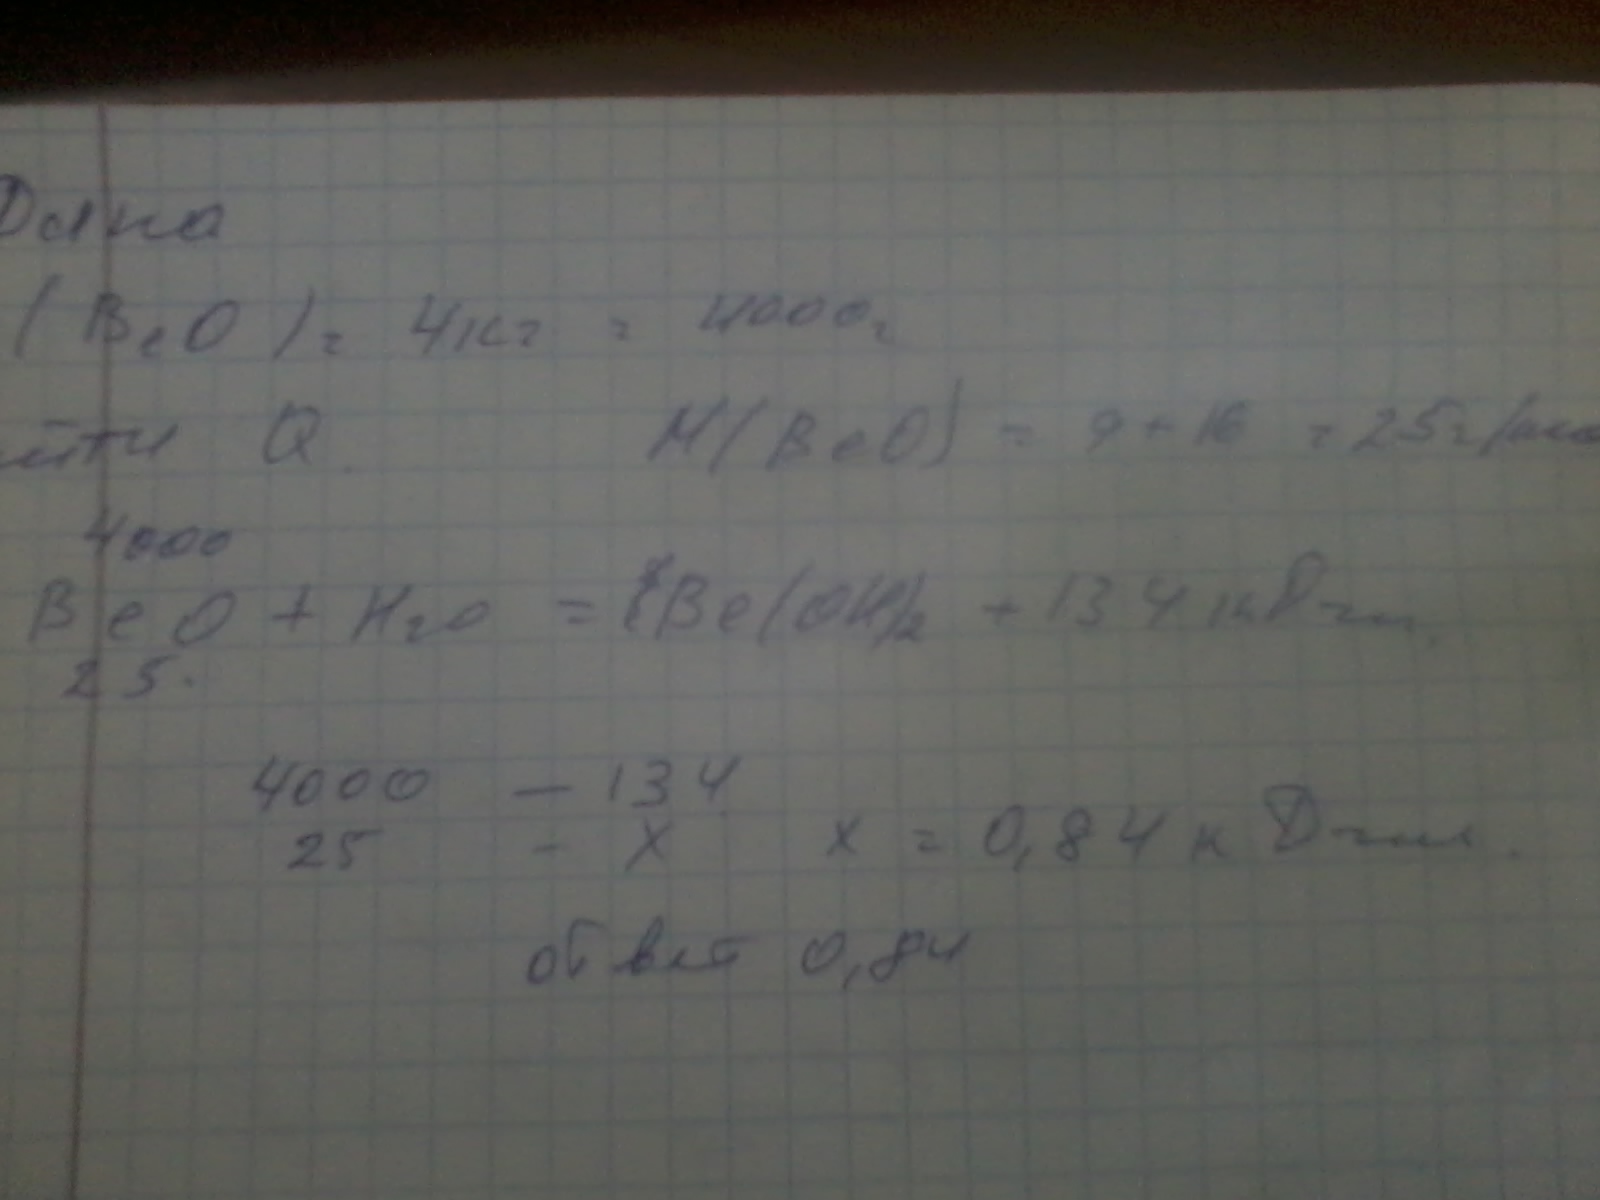 Дано
(BeO) = 4кг = 4000г
йти Q M(BeO) = 9+16 = 25г/мо
4000
BeO + H2O = Be(OH)2 + 134 кДж.
25.
4000 — 134
25 - x x = 0,84 кДж.
ответ 0,84